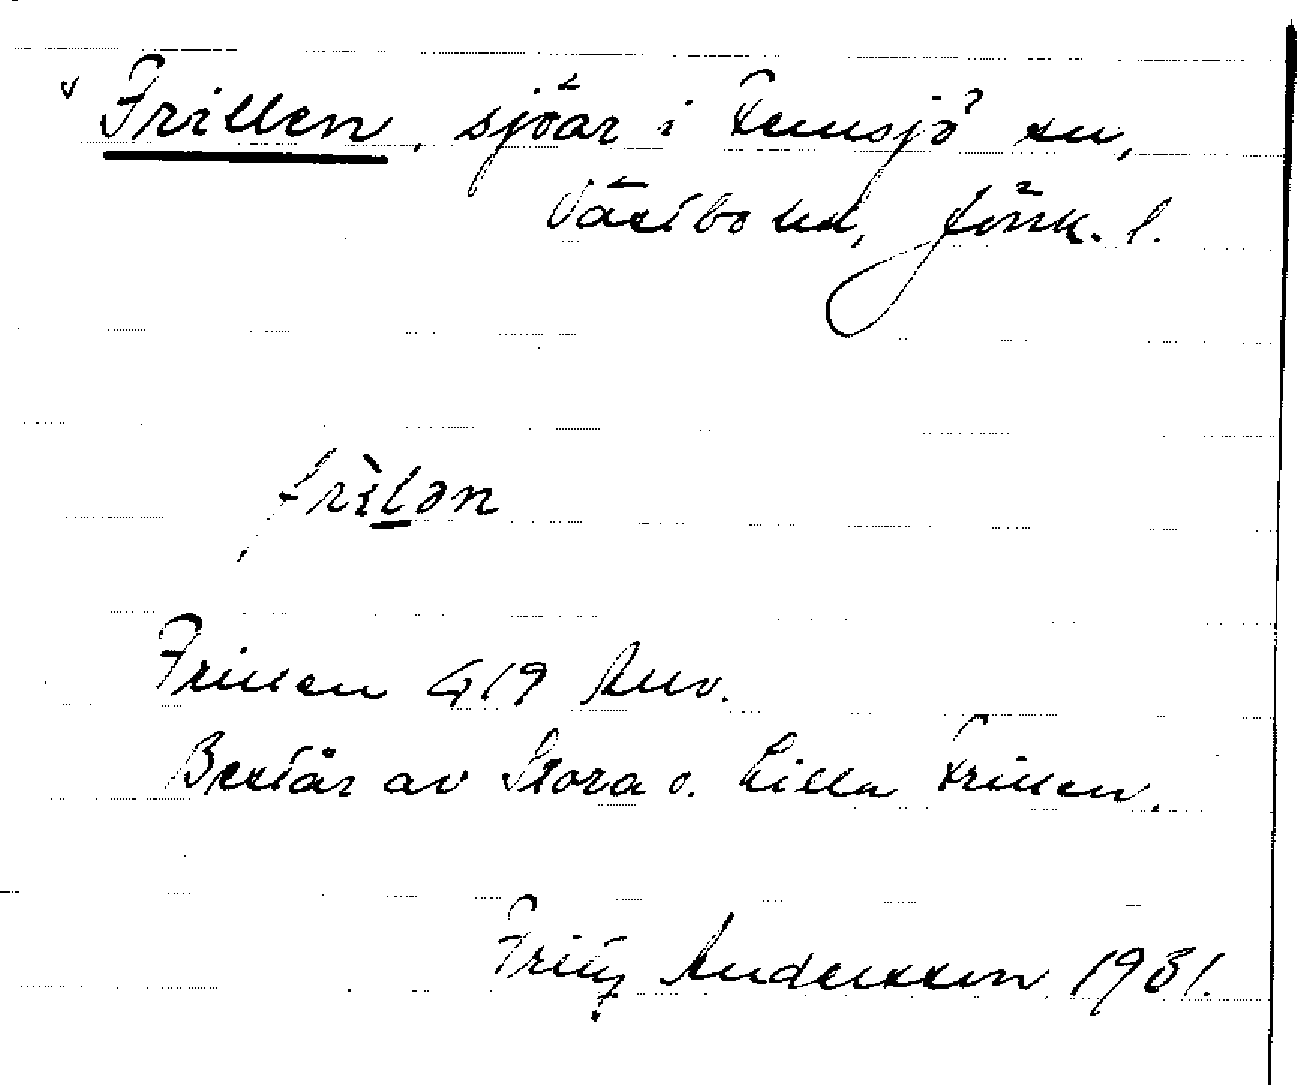 v Frillen, sjöar i Femsjö sn,
Västbo hd, Jönk. l.
frìlən
Frillen G19 Anv.
Består av Stora o. Lilla Frillen.
Fritz Andersson 1931.